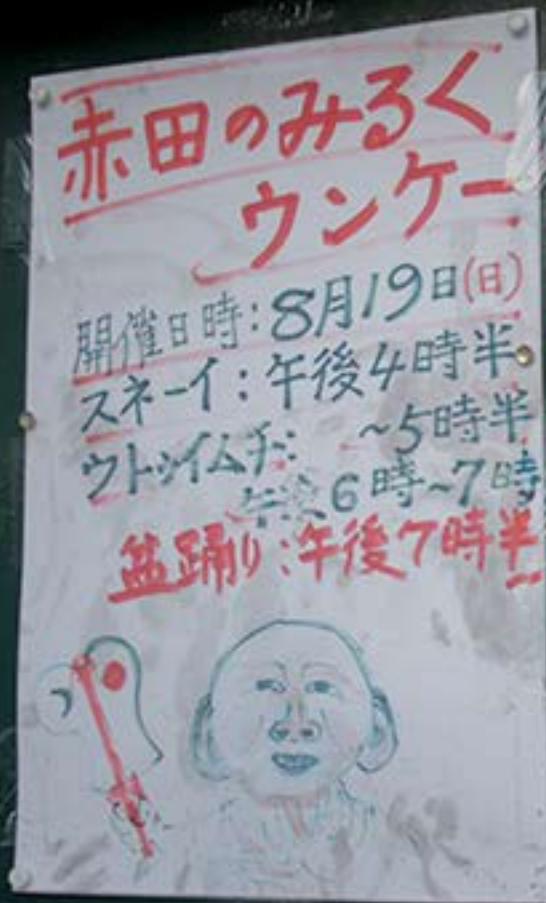 赤田のみるく
ウンケー
開催日時:8月19日(日)
スネーイ:午後4時半
~5時半
ウトゥイムチ:
午後6時~7時
盆踊り:午後7時半